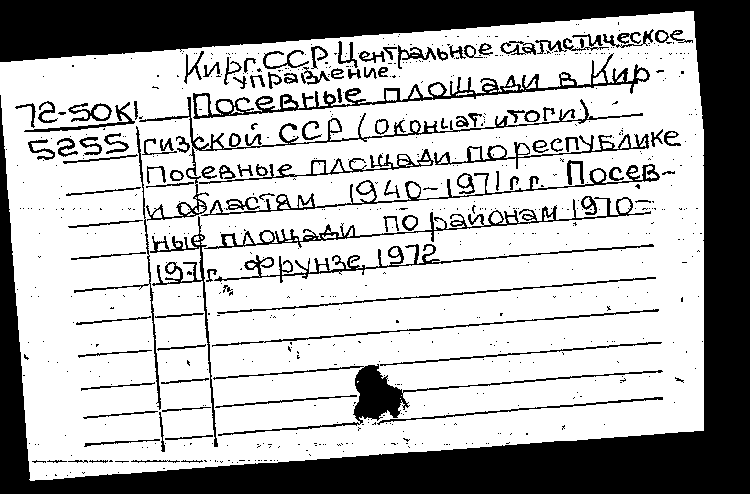 Кирг.ССР. Центральное статистическое
управление.
72-50К1 Посевные площади в Кир-
5255 гизской ССР (окончат. итоги).
Посевные площади по республике
и областям 1940-1971 г.г. Посев-
ные площади по районам 1970-
1971г. Фрунзе, 1972